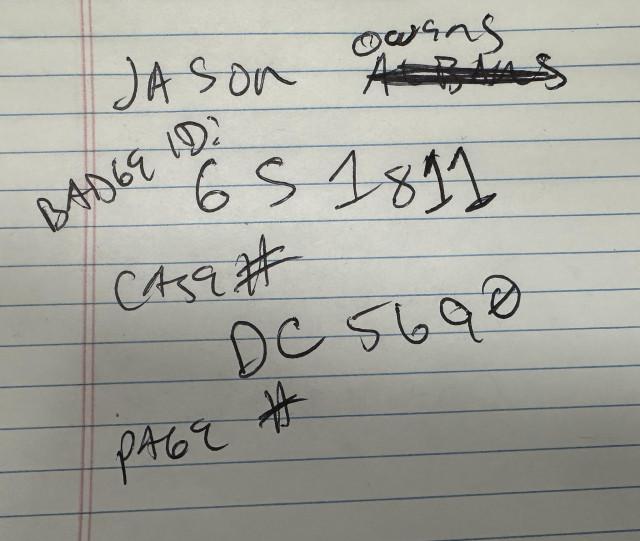 JASON Owens
BADGe ID:
GS 1811
CASe #
DC 5690
PAGe #